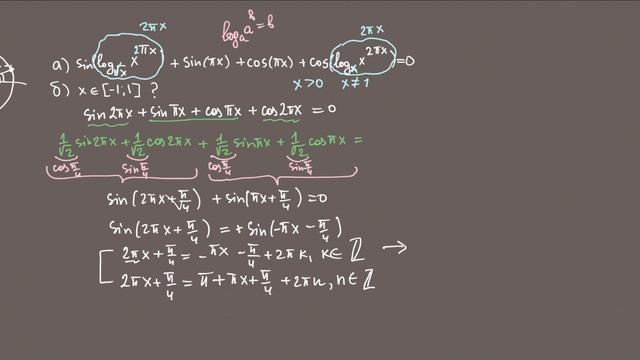 2πx
log_a a^b = b
2πx
а) sin(log_{√x} x^{2πx}) + sin(πx) + cos(πx) + cos(log_x x^{2πx}) = 0
б) x∈[-1;1] ?
x>0 x≠1
sin2πx + sinπx + cosπx + cos2πx = 0
1/√2 sin2πx + 1/√2 cos2πx + 1/√2 sinπx + 1/√2 cosπx =
cos π/4 sin π/4 cos π/4 sin π/4
sin(2πx+π/4) + sin(πx+π/4)=0
sin(2πx+π/4) = + sin(-πx-π/4)
2πx+π/4 = -πx - π/4 + 2πk, k∈ℤ →
2πx+π/4 = π+πx+π/4 + 2πn, n∈ℤ